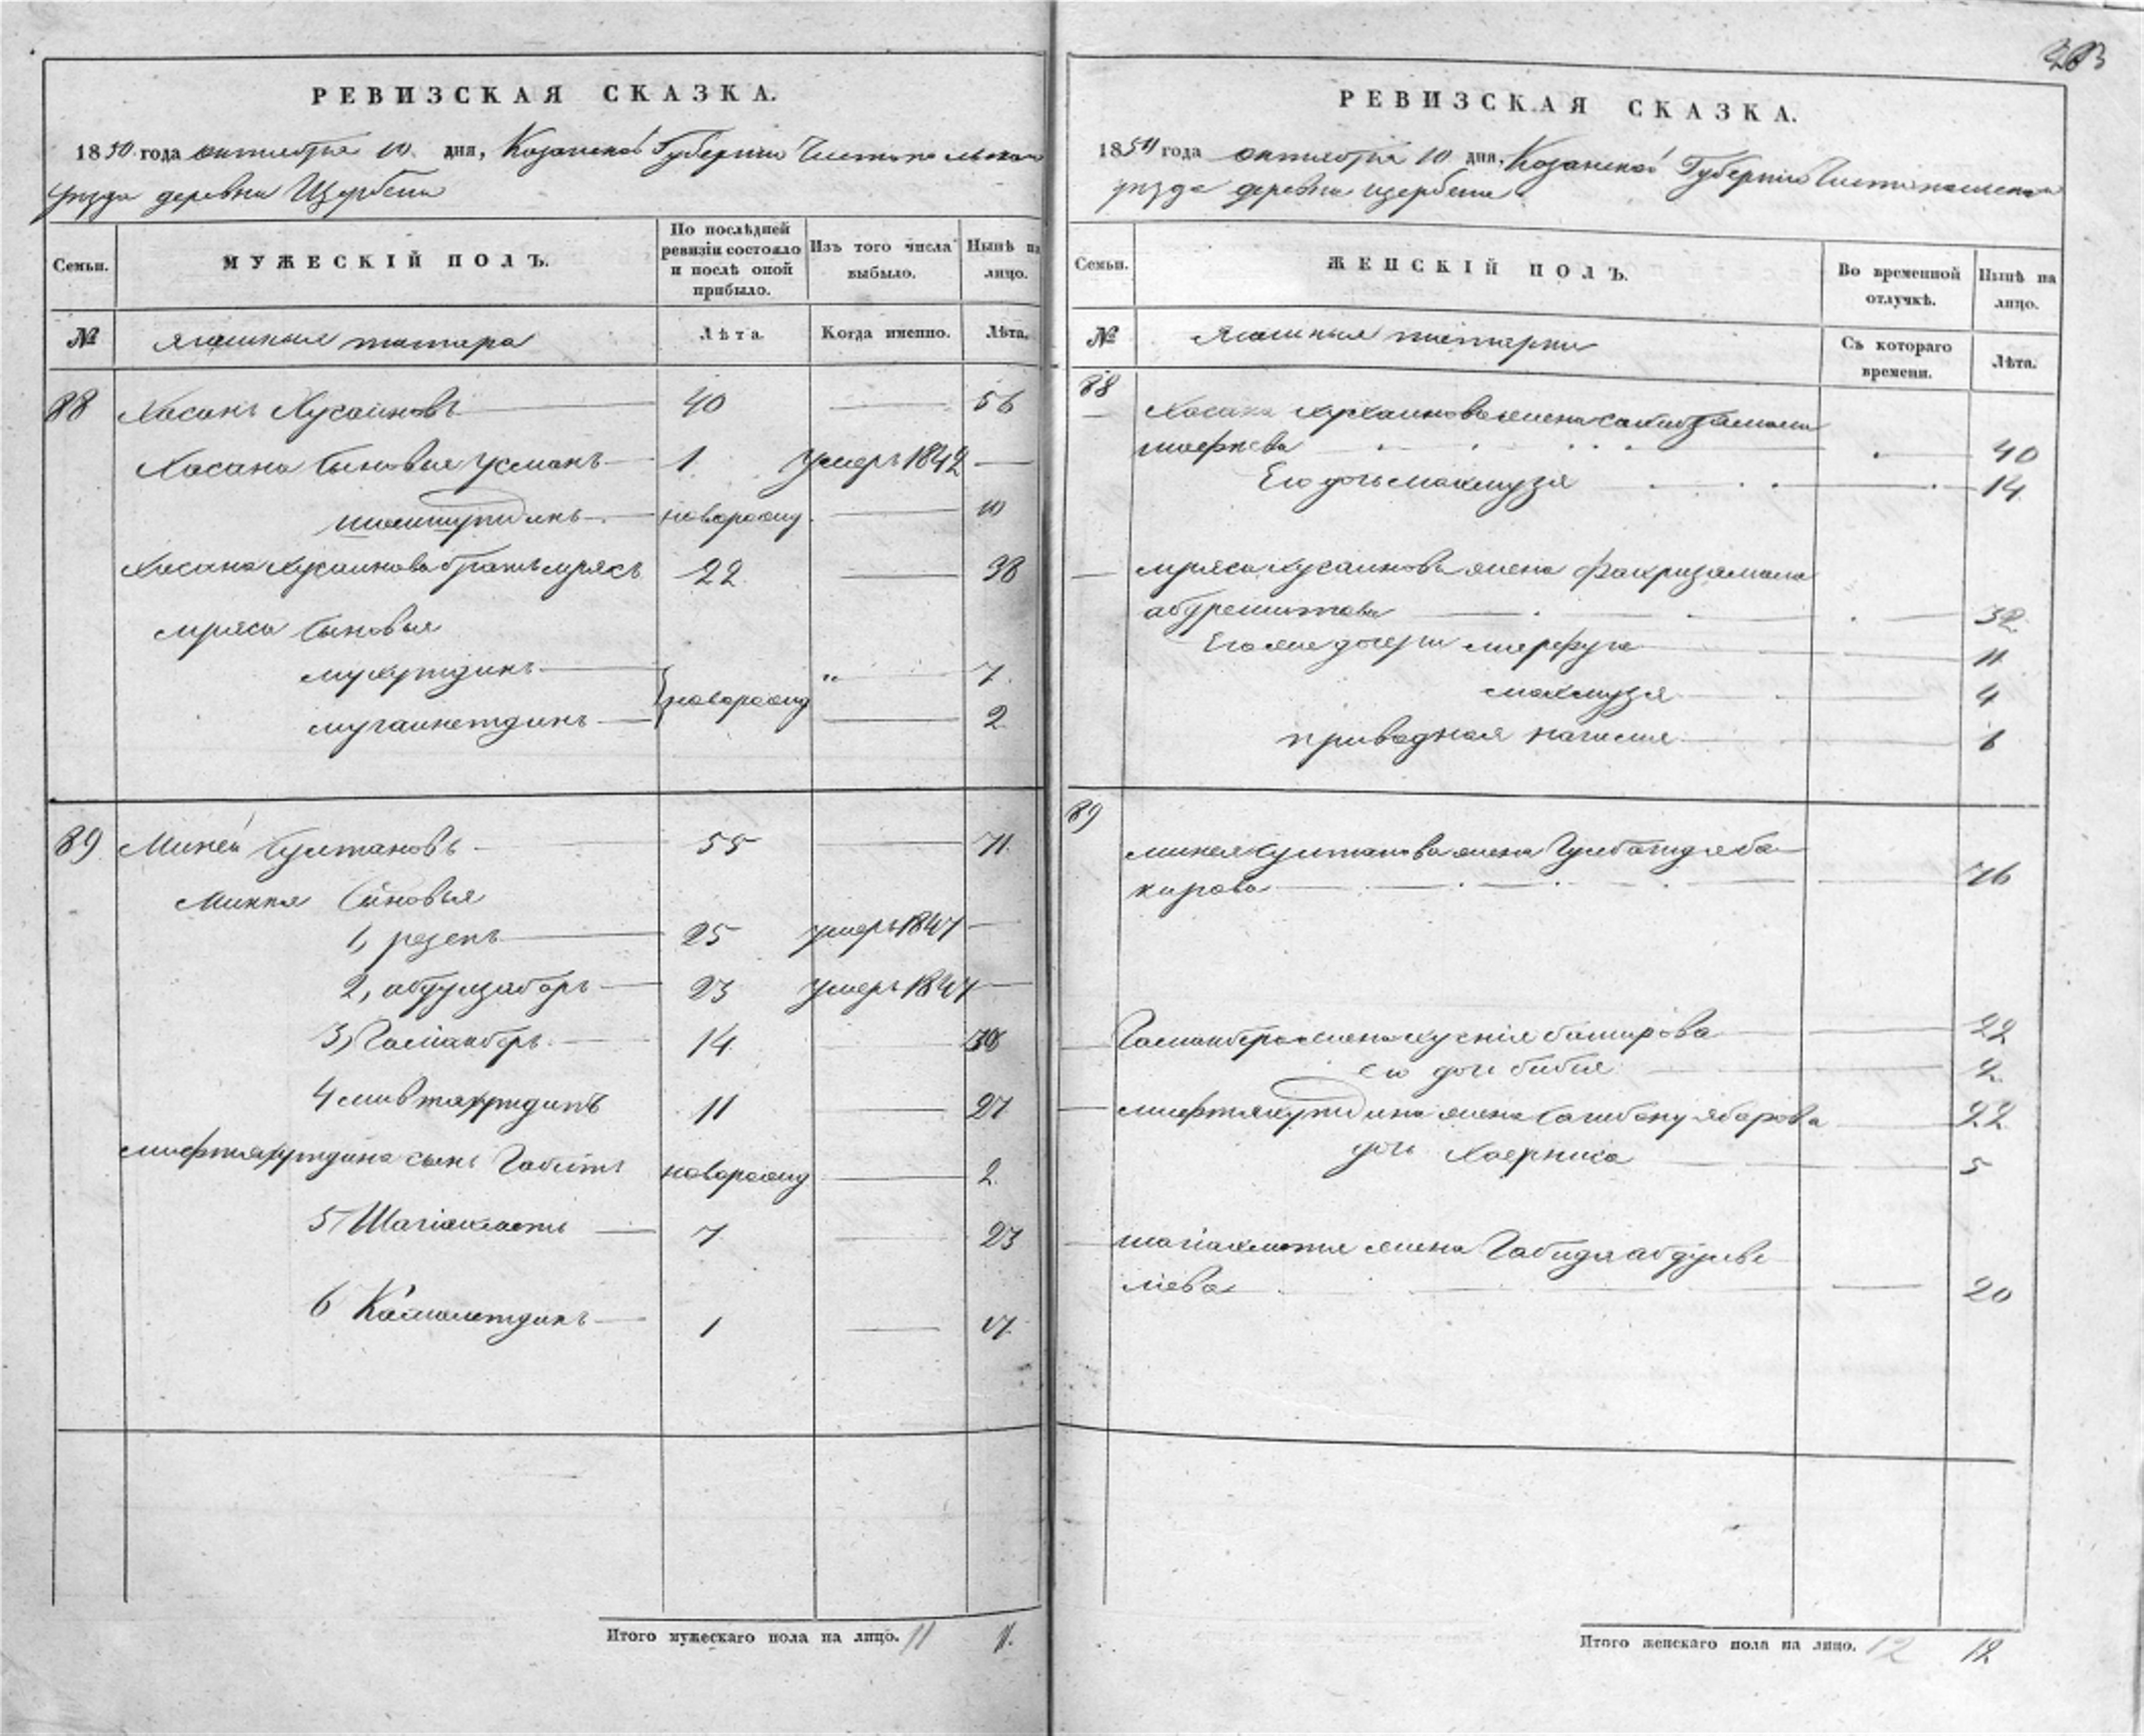 283
РЕВИЗСКАЯ СКАЗКА.
1850 года октября 10 дня, Казанской Губернии Чистопольскаго
уезда деревни Щербень
Семьи.
МУЖЕСКІЙ ПОЛЪ.
По послѣдней ревизіи состояло и послѣ оной прибыло.
Изъ того числа выбыло.
Нынѣ на лицо.
№
Ясашные татара
Лѣта.
Когда именно.
Лѣта.
88 Хасанъ Хусаиновъ 40 — 56
Хасана сыновья Усманъ 1 умеръ 1842 —
новорожд — 10
Хасана Хусаинова братъ мрясъ 22 — 38
мряса сыновья
мухутдинъ } новорожд " 7
мугаинетдинъ — 2
89 Миней Султановъ 55 — 71
Минея Сыновья
1, резепъ 25 умеръ 1847 —
2, абдулзаборъ 23 умеръ 1847 —
3, Гаснанберъ 14 — 30
4 мифтахутдинъ 11 — 27
мифтахутдина сынъ Габитъ новорожд — 2
5 Шагіахметъ 7 — 23
6 Камалетдинъ 1 — 17
Итого мужескаго пола на лицо. 11 11.
РЕВИЗСКАЯ СКАЗКА.
1850 года октября 10 дня, Казанской Губернии Чистопольскаго
уезда деревни Щербень
Семьи.
ЖЕНСКІЙ ПОЛЪ.
Во временной отлучкѣ.
Нынѣ на лицо.
№
Ясашные татарки
Съ котораго времени.
Лѣта.
88
Хасана Хусаинова жена
40
Его дочь Махмузя 14
мряса Хусаинова жена Факризямала
абдрешитова 32
Его же дочери 11
махмузя 4
приводная нагима 6
89
минея Султанова жена Гулбагидя ба-
кирова 76
жена хуснія баширова 22
его дочь бибия 2
мифтяхутдина жена Сагибану ябарова 22
дочь Хаерниса 5
шагіахметя жена Габидя абдулве
лева 20
Итого женскаго пола на лицо. 12 12